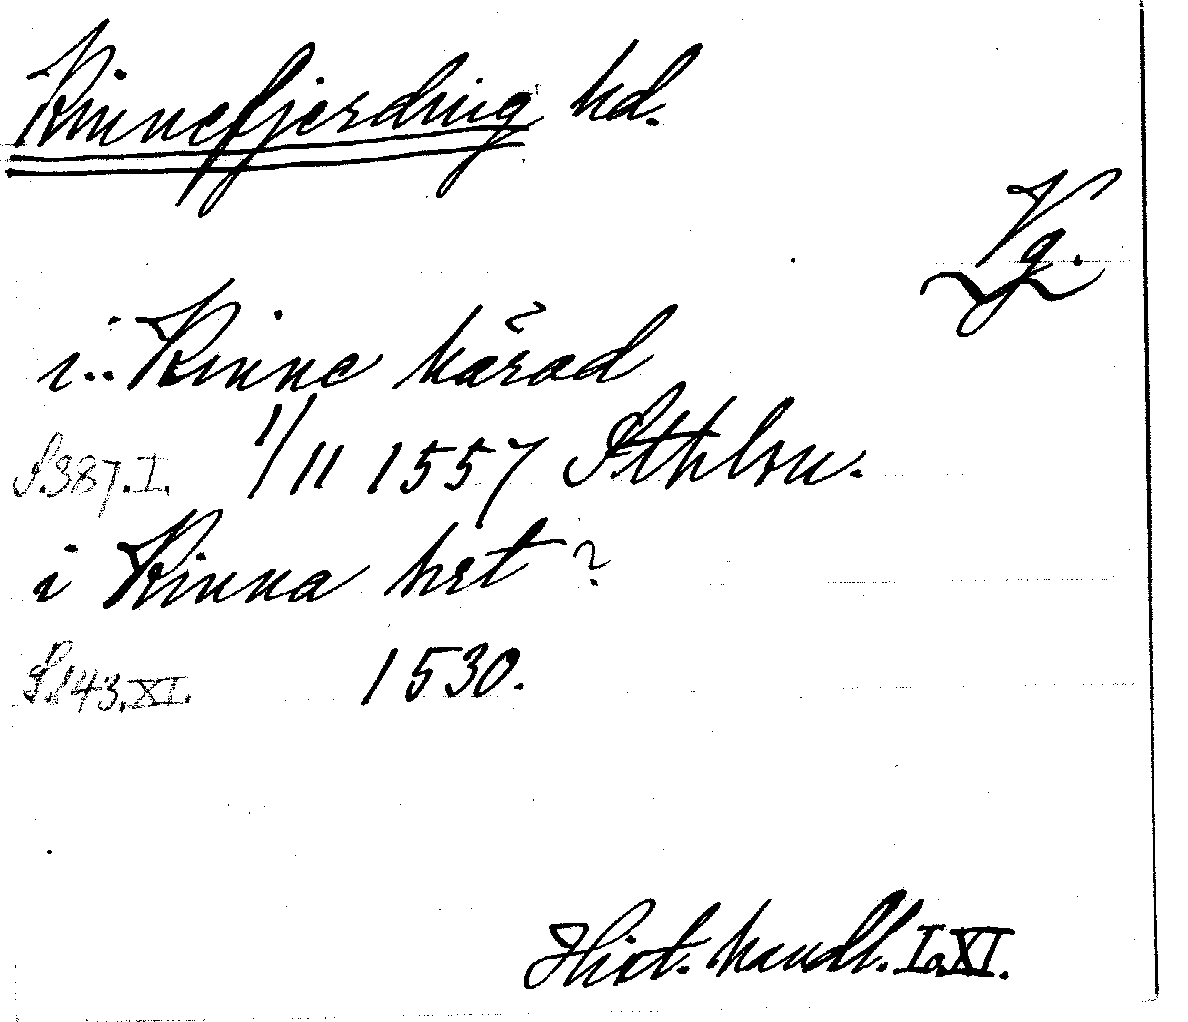 Kinnefjerding hd.
Vg.
i.. Kinne härad
S.387.I. 1/11 1557 Sthlm.
i Kinna hrt ?
S.143.XI. 1530.
Hist. handl. I.XI.